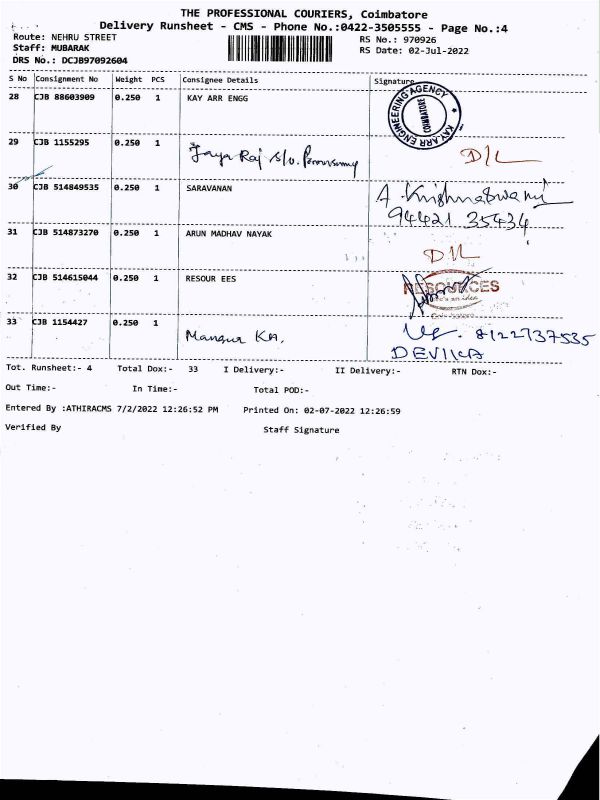 THE PROFESSIONAL COURIERS, Coimbatore
Delivery Runsheet - CMS - Phone No.:0422-3505555 - Page No.:4
Route: NEHRU STREET RS No.: 970926
Staff: MUBARAK RS Date: 02-Jul-2022
DRS No.: DCJB97092604
S No Consignment No Weight PCS Consignee Details Signature
28 CJB 88603909 0.250 1 KAY ARR ENGG KAY.ARR ENGINEERING AGENCY COIMBATORE
29 CJB 1155295 0.250 1 Jaya Raj s/o. D/L
30 CJB 514849535 0.250 1 SARAVANAN A. Krishnaswamy
94421 35434
31 CJB 514873270 0.250 1 ARUN MADHAV NAYAK D/L
32 CJB 514615044 0.250 1 RESOUR EES RESOURCES
33 CJB 1154427 0.250 1 Mansur KA. 8122737535
DEVIKA
Tot. Runsheet:- 4 Total Dox:- 33 I Delivery:- II Delivery:- RTN Dox:-
Out Time:- In Time:- Total POD:-
Entered By :ATHIRACMS 7/2/2022 12:26:52 PM Printed On: 02-07-2022 12:26:59
Verified By Staff Signature